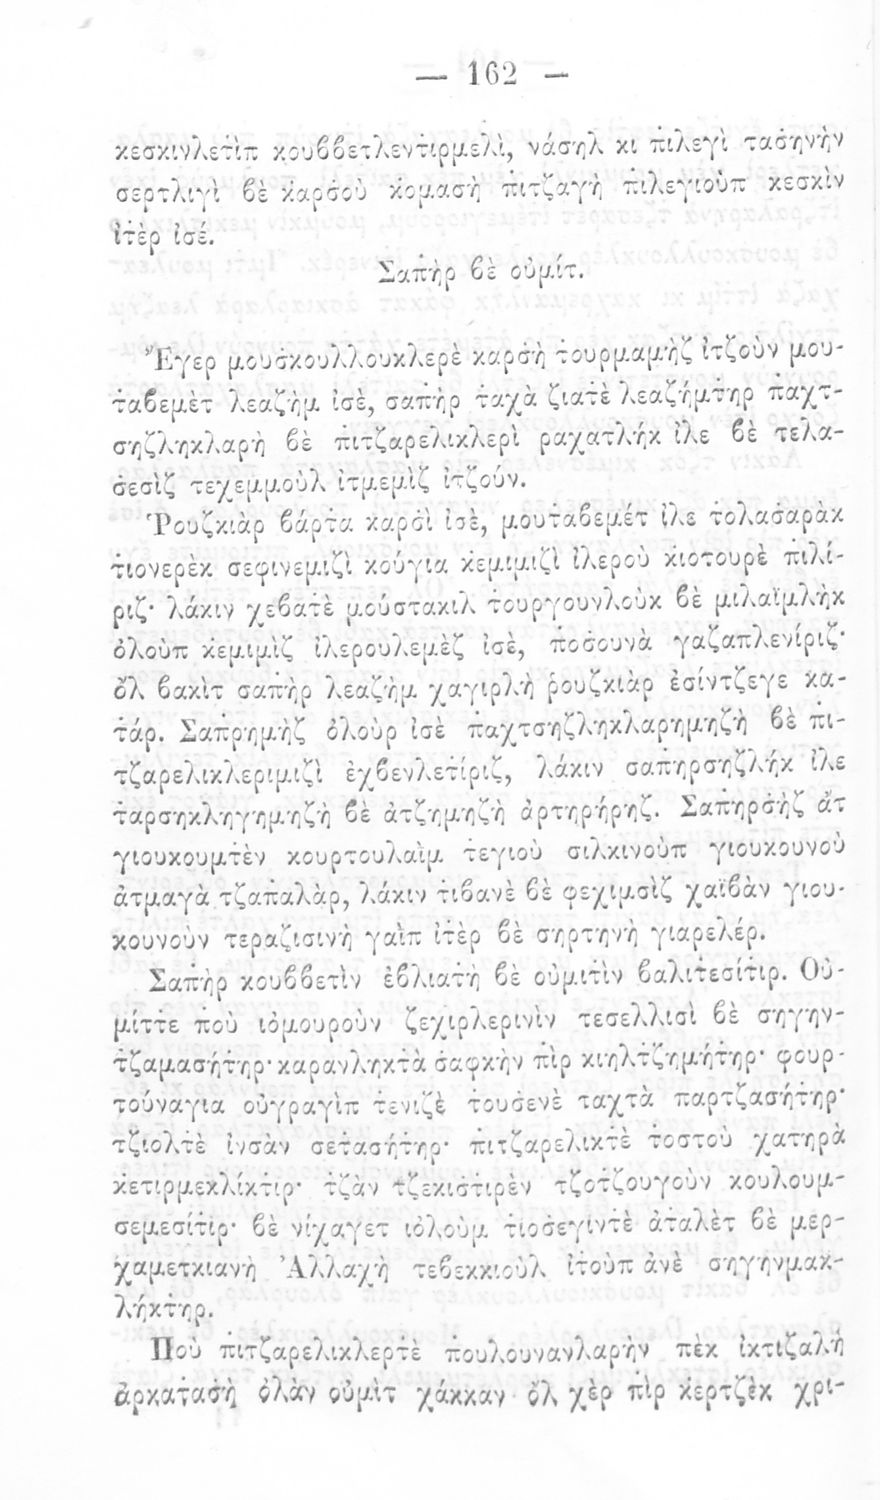 — 162 —
κεσκινλετὶπ κουββετλεντιρμελὶ, νάσηλ κι πιλεγὶ τασηνὴν
σερτλιγὶ βὲ καρσοὺ κομασὴ πιτζαγὴ πιλεγιοὺπ κεσκὶν
ἰτὲρ ἰσέ.
Σαπὴρ βὲ οὐμίτ.
Ἔγερ μουσκουλλουκλερὲ καρσὴ τουρμαμὴζ ἰτζοὺν μου-
ταβεμὲτ λεαζὴμ ἰσὲ, σαπὴρ ταχὰ ζιατὲ λεαζήμτηρ παχτ-
σηζληκλαρὴ βὲ πιτζαρελικλερὶ ραχατλὴκ ἰλε βὲ τελα-
σεσὶζ τεχεμμοὺλ ἰτμεμὶζ ἰτζούν.
Ῥουζκιὰρ βάρτα καρσὶ ἰσὲ, μουταβεμέτ ἰλε τολασαρὰκ
τιονερὲκ σεφινεμιζὶ κούγια κεμιμιζὶ ἰλεροὺ κιοτουρὲ πιλί-
ριζ· λάκιν χεβατὲ μούστακιλ τουργουνλοὺκ βὲ μιλαϊμλὴκ
ὀλοὺπ κεμιμὶζ ἰλερουλεμὲζ ἰσὲ, ποσουνὰ γαζαπλενίριζ·
ὂλ βακὶτ σαπὴρ λεαζὴμ χαγιρλὴ ῥουζκιὰρ ἐσίντζεγε κα-
τάρ. Σαπρημὴζ ὀλοὺρ ἰσὲ παχτσηζληκλαρημηζὴ βὲ πι-
τζαρελικλεριμιζὶ ἐχβενλετίριζ, λάκιν σαπηρσηζλὴκ ἰλε
ταρσηκληγημηζὴ βὲ ἀτζημηζὴ ἀρτηρήρηζ. Σαπηρσὴζ ἂτ
γιουκουμτὲν κουρτουλαὶμ τεγιοὺ σιλκινοὺπ γιουκουνοὺ
ἀτμαγὰ τζαπαλὰρ, λάκιν τιβανὲ βὲ φεχιμσὶζ χαϊβὰν γιου-
κουνοὺν τεραζισινὴ γαὶπ ἰτὲρ βὲ σηρτηνὴ γιαρελέρ.
Σαπὴρ κουββετὶν ἐβλιατὴ βὲ οὐμιτὶν βαλιτεσίτιρ. Οὐ-
μίττε ποὺ ιὀμουροὺν ζεχιρλερινὶν τεσελλισὶ βὲ σηγην-
τζαμασήτηρ· καρανληκτὰ σαφκὴν πὶρ κιηλτζημήτηρ· φουρ-
τούναγια οὐγραγὶπ τενιζὲ τουσενὲ ταχτὰ παρτζασήτηρ·
τζιολτὲ ἰνσὰν σετασήτηρ· πιτζαρελικτὲ τοστοὺ χατηρὰ
κετιρμεκλίκτιρ· τζὰν τζεκιστιρὲν τζοτζουγοὺν κουλουμ-
σεμεσίτιρ· βὲ νίχαγετ ιὀλοὺμ τιοσεγίντὲ ἀταλὲτ βὲ μερ-
χαμετκιανὴ Ἀλλαχὴ τεβεκκιοὺλ ἰτοὺπ ἀνὲ σηγηνμακ-
λήκτηρ.
Ποὺ πιτζαρελικλερτὲ πουλουνανλαρὴν πὲκ ἰκτιζαλὴ
ἀρκατασὴ ὀλὰν οὐμὶτ χάκκαν ὂλ χὲρ πὶρ κερτζὲκ χρι-